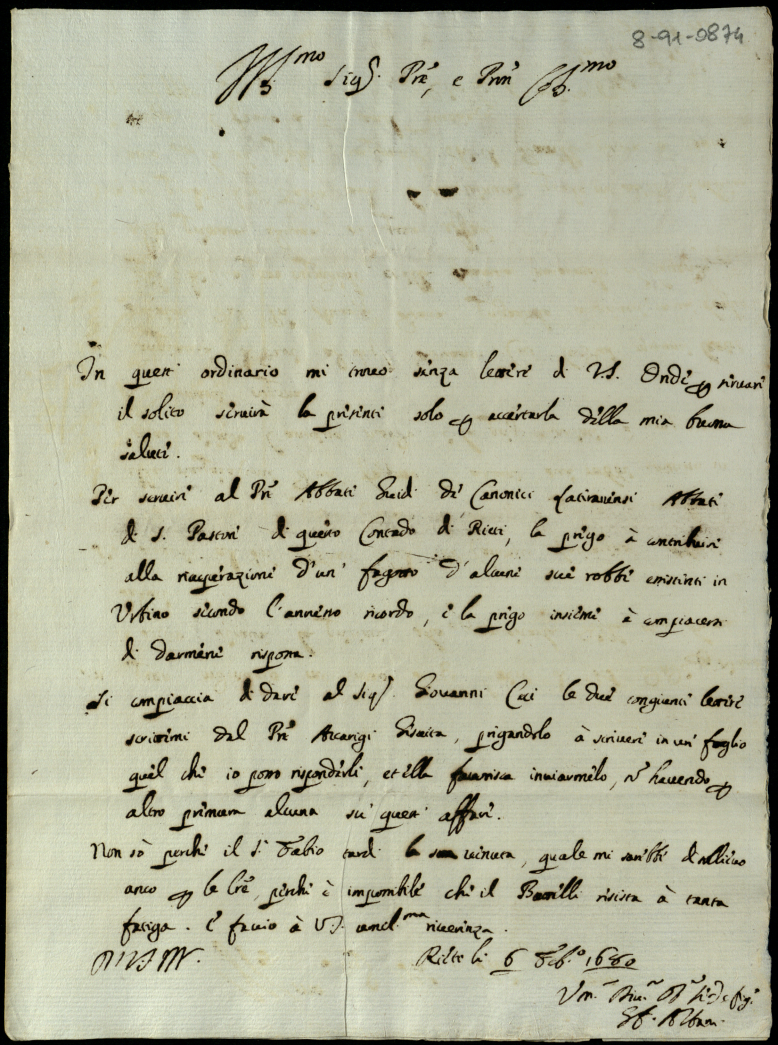 8-91-0874
Ill.mo Sig.r P̃re, e Prõn Col.mo
In quest' ordinario mi trovo senza lettere di V.S. Onde p servare
il solito servirà la presente solo p accertarla della mia buona
salute.
Per servire al P̃re Abbate de' Canonici Lateranensi Abbate
di S. Pastore di questo Contado di Rieti, la prego à contribuire
alla ricuperatione d'un' fagotto d'alcune sue robbe esistenti in
Urbino secondo l'annesso ricordo, e la prego insieme à compiacersi
di darmene risposta.
Si compiaccia di dare al Sig.r Giovanni le due congiunte lettere
scrittemi dal P̃re Giesuita, pregandolo à scrivere in un' foglio
quel che io posso risponderli, et ella favorisca inviarmelo, nõ havendo p
altro premura alcuna in questi affari.
Non sò perche il S.r Fabio tardi la sua venuta, quale mi sarebbe di sollievo
anco p le l̃re, perche è impossibile che il resista à tanta
fatiga. E faccio à V.S. umil.ma riverenza.
Di V.S. Ill.
Riete li 6 Feb.o 1660
Alban.